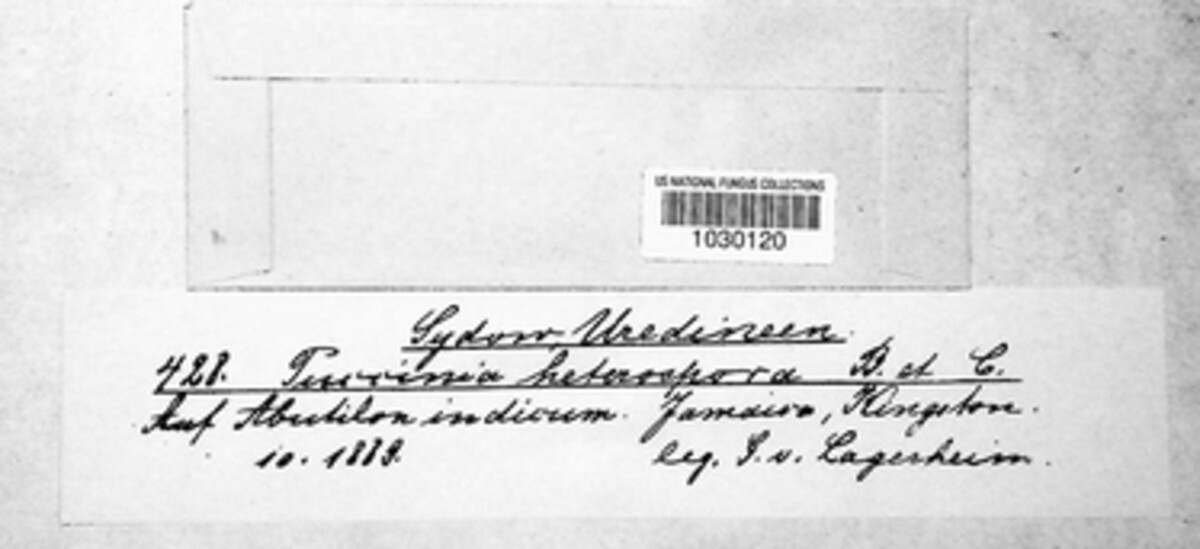 US NATIONAL FUNGUS COLLECTIONS
1030120
Sydow, Uredineen.
428. Puccinia heterospora B. et C.
Auf Abutilon indicum. Jamaica, Kingston.
10. 1889. leg. G. v. Lagerheim.